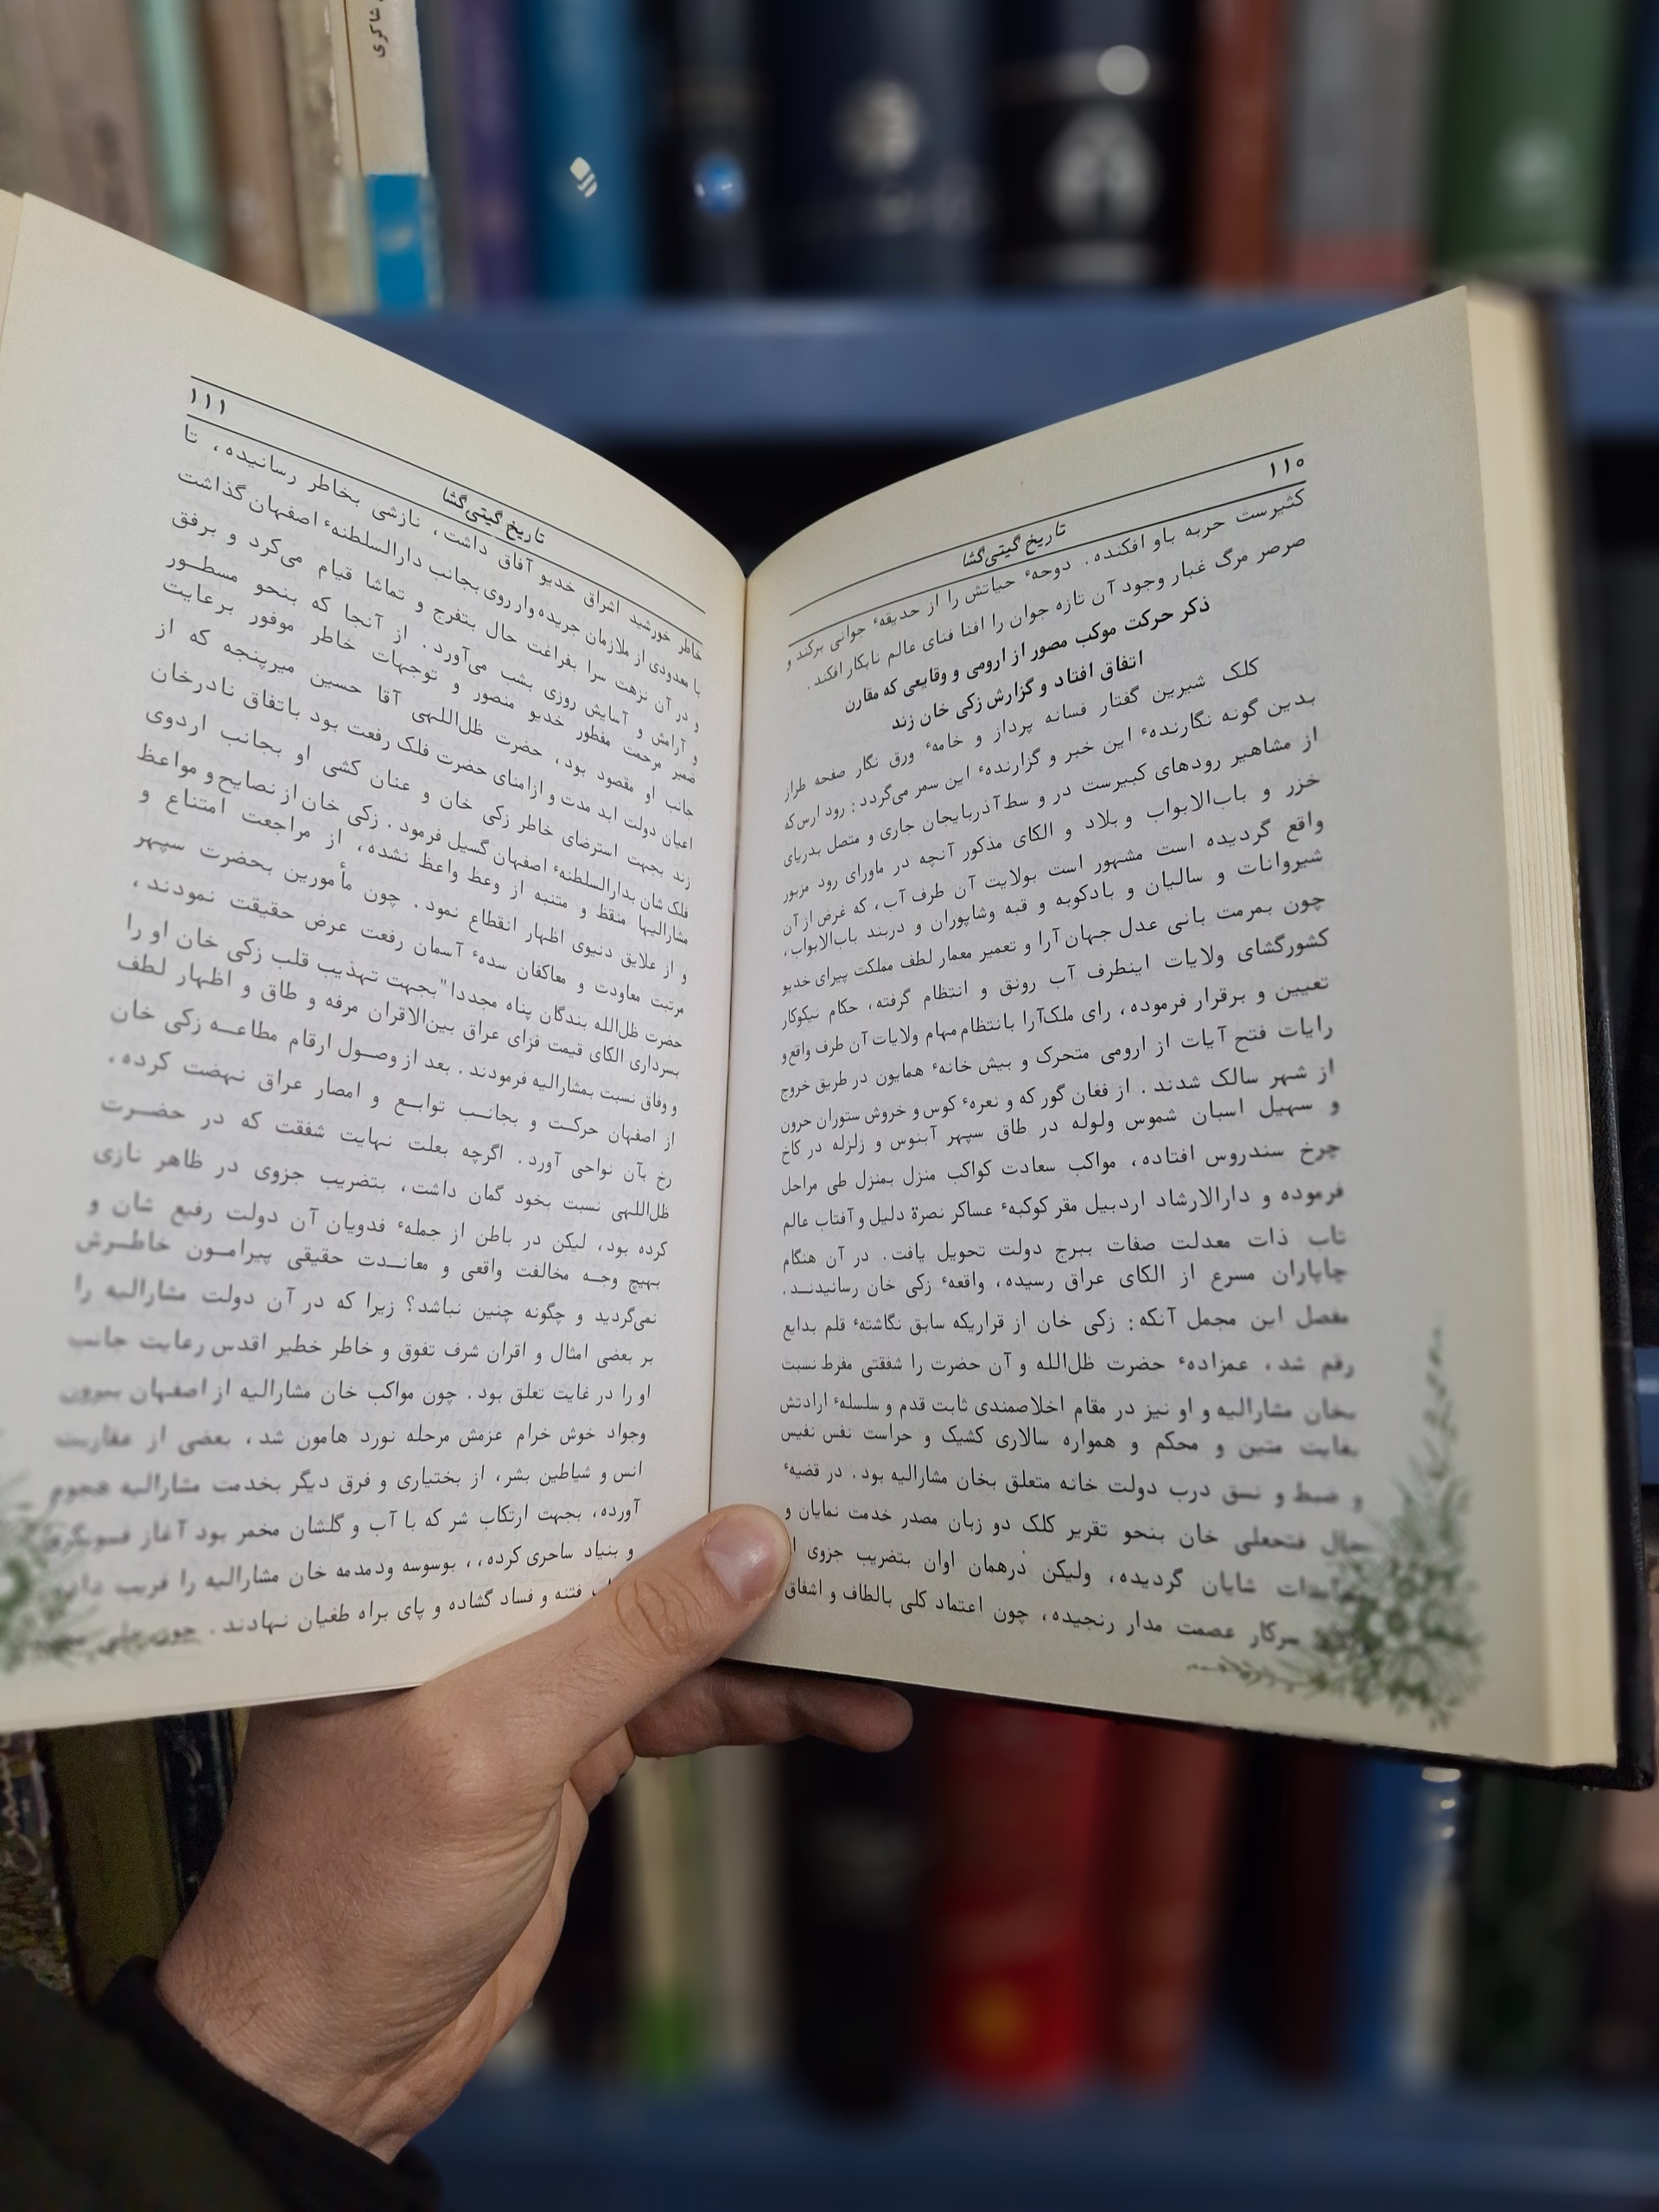 شاکری
۱۱۰
تاریخ گیتی‌گشا
کثیرست حربه باو افکنده. دوحهٔ حیاتش را از حدیقهٔ جوانی برکند و
صرصر مرگ غبار وجود آن تازه جوان را افنا فنای عالم نابکار افکند.
ذکر حرکت موکب مصور از ارومی و وقایعی که مقارن
اتفاق افتاد و گزارش زکی خان زند
کلک شیرین گفتار فسانه پرداز و خامهٔ ورق نگار صفحه طراز
بدین گونه نگارندهٔ این خبر و گزارندهٔ این سمر می‌گردد: رود ارس که
از مشاهیر رودهای کبیرست در و سط آذربایجان جاری و متصل بدریای
خزر و باب‌الابواب و بلاد و الکای مذکور آنچه در ماورای رود مزبور
واقع گردیده است مشهور است بولایت آن طرف آب، که غرض از آن
شیروانات و سالیان و بادکوبه و قبه وشاپوران و دربند باب‌الابواب،
چون بمرمت بانی عدل جهان آرا و تعمیر معمار لطف مملکت پیرای خدیو
کشورگشای ولایات اینطرف آب رونق و انتظام گرفته، حکام نیکوکار
تعیین و برقرار فرموده، رای ملک‌آرا بانتظام مهام ولایات آن طرف واقع و
رایات فتح آیات از ارومی متحرک و بیش خانهٔ همایون در طریق خروج
از شهر سالک شدند. از فغان گور که و نعرهٔ کوس و خروش ستوران حرون
و سهیل اسبان شموس ولوله در طاق سپهر آبنوس و زلزله در کاخ
چرخ سندروس افتاده، مواکب سعادت کواکب منزل بمنزل طی مراحل
فرموده و دارالارشاد اردبیل مقر کوکبهٔ عساکر نصرة دلیل و آفتاب عالم
تاب ذات معدلت صفات ببرج دولت تحویل یافت. در آن هنگام
چاپاران مسرع از الکای عراق رسیده، واقعهٔ زکی خان رسانیدند.
مفصل این مجمل آنکه: زکی خان از قراریکه سابق نگاشتهٔ قلم بدایع
رقم شد، عمزادهٔ حضرت ظل‌الله و آن حضرت را شفقتی مفرط نسبت
بخان مشارالیه و او نیز در مقام اخلاصمندی ثابت قدم و سلسلهٔ ارادتش
بغایت متین و محکم و همواره سالاری کشیک و حراست نفس نفیس
و ضبط و نسق درب دولت خانه متعلق بخان مشارالیه بود. در قضیهٔ
جدال فتحعلی خان بنحو تقریر کلک دو زبان مصدر خدمت نمایان و
شایان گردیده، ولیکن درهمان اوان بتضریب جزوی
سرکار عصمت مدار رنجیده، چون اعتماد کلی بالطاف و اشفاق
۱۱۱
تاریخ گیتی‌گشا
خاطر خورشید اشراق خدیو آفاق داشت، نازشی بخاطر رسانیده، تا
با معدودی از ملازمان جریده‌وار روی بجانب دارالسلطنهٔ اصفهان گذاشت
و در آن نزهت سرا بفراغت حال بتفرج و تماشا قیام می‌کرد و برفق
و آرامش و آسایش روزی بشب می‌آورد. از آنجا که بنحو مسطور
ضمیر مرحمت مفطور خدیو منصور و توجهات خاطر موفور برعایت
جانب او مقصود بود، حضرت ظل‌اللهی آقا حسین میرپنجه که از
اعیان دولت ابد مدت و ازامنای حضرت فلک رفعت بود باتفاق نادرخان
زند بجهت استرضای خاطر زکی خان و عنان کشی او بجانب اردوی
فلک شان بدارالسلطنهٔ اصفهان گسیل فرمود. زکی خان از نصایح و مواعظ
مشارالیها منقظ و متنبه از وعظ واعظ نشده، از مراجعت امتناع و
و از علایق دنیوی اظهار انقطاع نمود. چون مأمورین بحضرت سپهر
مرتبت معاودت و معاکفان سدهٔ آسمان رفعت عرض حقیقت نمودند،
حضرت ظل‌الله بندگان پناه مجددا" بجهت تهذیب قلب زکی خان او را
بسرداری الکای قیمت فزای عراق بین‌الاقران مرفه و طاق و اظهار لطف
و وفاق نسبت بمشارالیه فرمودند. بعد از وصول ارقام مطاعه زکی خان
از اصفهان حرکت و بجانب توابع و امصار عراق نهضت کرده،
رخ بآن نواحی آورد. اگرچه بعلت نهایت شفقت که در حضرت
ظل‌اللهی نسبت بخود گمان داشت، بتضریب جزوی در ظاهر نازی
کرده بود، لیکن در باطن از جملهٔ فدویان آن دولت رفیع شان و
بهیچ وجه مخالفت واقعی و معاندت حقیقی پیرامون خاطرش
نمی‌گردید و چگونه چنین نباشد؟ زیرا که در آن دولت مشارالیه را
بر بعضی امثال و اقران شرف تفوق و خاطر خطیر اقدس رعایت جانب
او را در غایت تعلق بود. چون مواکب خان مشارالیه از اصفهان بیرون
وجواد خوش خرام عزمش مرحله نورد هامون شد، بعضی از عفاریت
انس و شیاطین بشر، از بختیاری و فرق دیگر بخدمت مشارالیه هجوم
آورده، بجهت ارتکاب شر که با آب و گلشان مخمر بود آغاز فسونگری
و بنیاد ساحری کرده،، بوسوسه ودمدمه خان مشارالیه را فریب دادند
فتنه و فساد گشاده و پای براه طغیان نهادند. چون